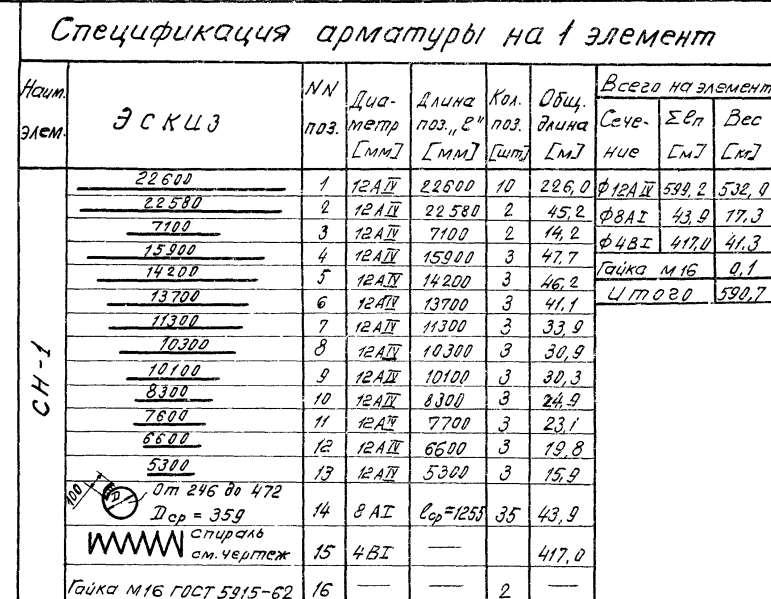 Спецификация арматуры на 1 элемент
Наим. элем. ЭСКИЗ NN поз. Диаметр [мм] Длина поз. „ℓ" [мм] Кол. поз. [шт] Общ. длина [м]
Всего на элемент
Сече-ние Σℓп [м] Вес [кг]
СН-1
22600 1 12АIV 22600 10 226,0
22580 2 12АIV 22580 2 45,2
7100 3 12АIV 7100 2 14,2
15900 4 12АIV 15900 3 47.7
14200 5 12АIV 14200 3 46,2
13700 6 12АIV 13700 3 41,1
11300 7 12АIV 11300 3 33,9
10300 8 12АIV 10300 3 30,9
10100 9 12АIV 10100 3 30,3
8300 10 12АIV 8300 3 24,9
7600 11 12АIV 7700 3 23,1
6600 12 12АIV 6600 3 19,8
5300 13 12АIV 5300 3 15,9
100 D От 246 до 472
Dср = 359 14 8АI ℓср=1255 35 43,9
спираль
см. чертеж 15 4ВI — 417,0
Гайка М16 ГОСТ 5915-62 16 — — 2 —
ф12АIV 599,2 532,0
ф8АI 43,9 17,3
ф4ВI 417,0 41,3
Гайка М16 0,1
Итого 590,7